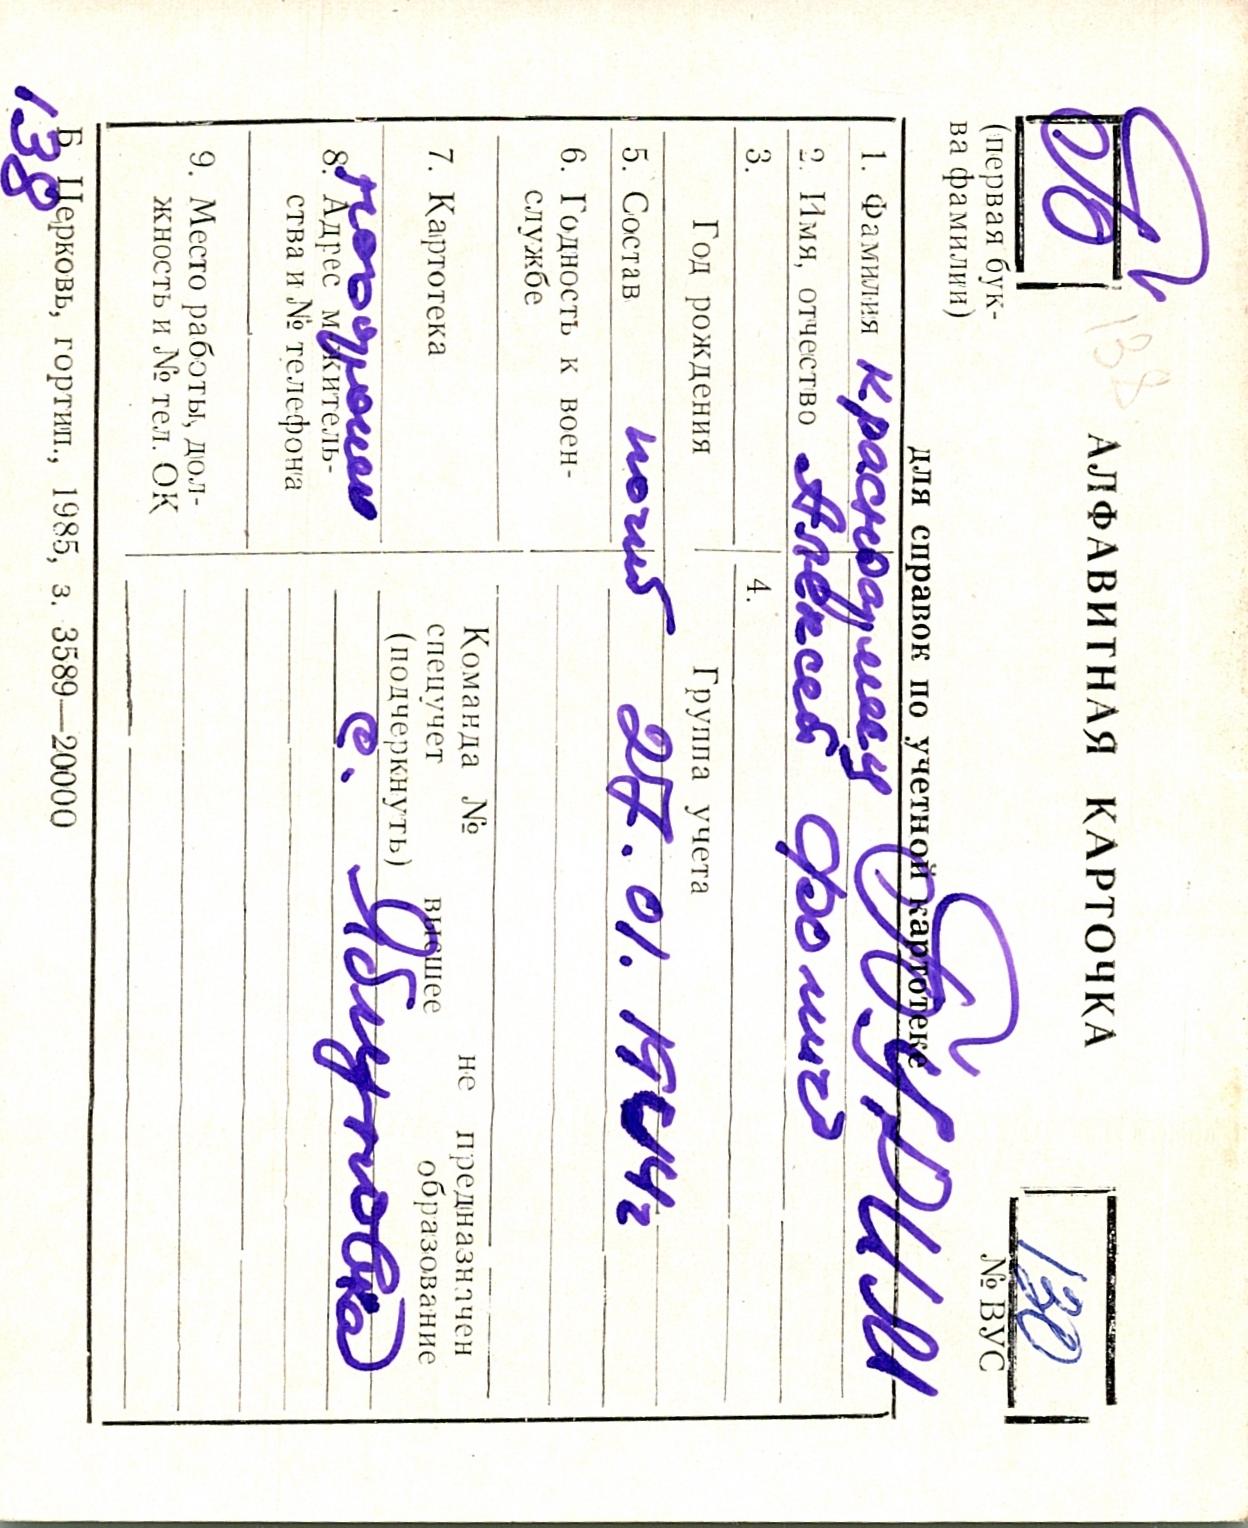 138
АЛФАВИТНАЯ КАРТОЧКА
130
(первая бук-
ва фамилии)
№ ВУС
для справок по учетной картотеке
1. Фамилия красноармеец БУРЫМ
2. Имя, отчество Алексей Фомич
3. Год рождения
4. Группа учета
5. Состав погиб 27.01.1944г
6. Годность к воен-
службе
7. Картотека
Команда № не предназначен
спецучет высшее образование
(подчеркнуть)
похоронен с. Яблуновка
8. Адрес м житель-
ства и № телефона
9. Место работы, дол-
жность и № тел. ОК
Б Церковь, гортип., 1985, з. 3589—20000
138